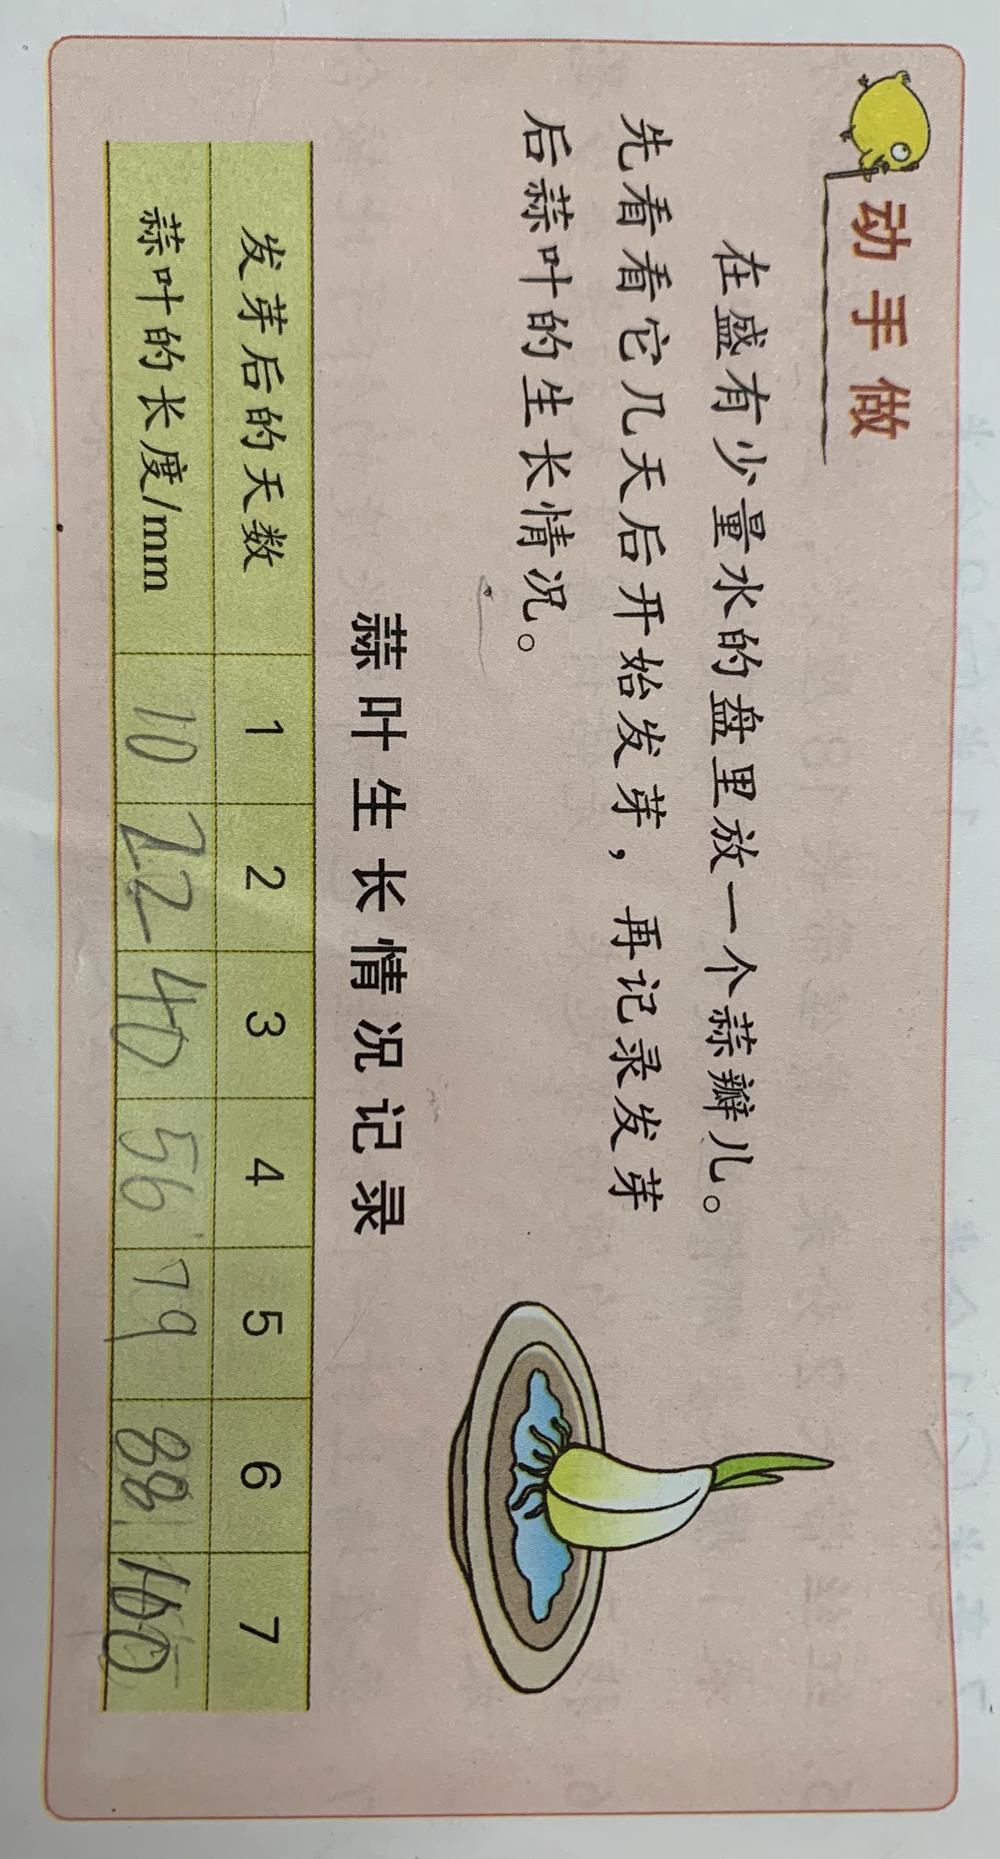 动手做
在盛有少量水的盘里放一个蒜瓣儿。
先看看它几天后开始发芽，再记录发芽
后蒜叶的生长情况。
蒜叶生长情况记录
发芽后的天数 1 2 3 4 5 6 7
蒜叶的长度/mm 10 22 40 56 79 88 100